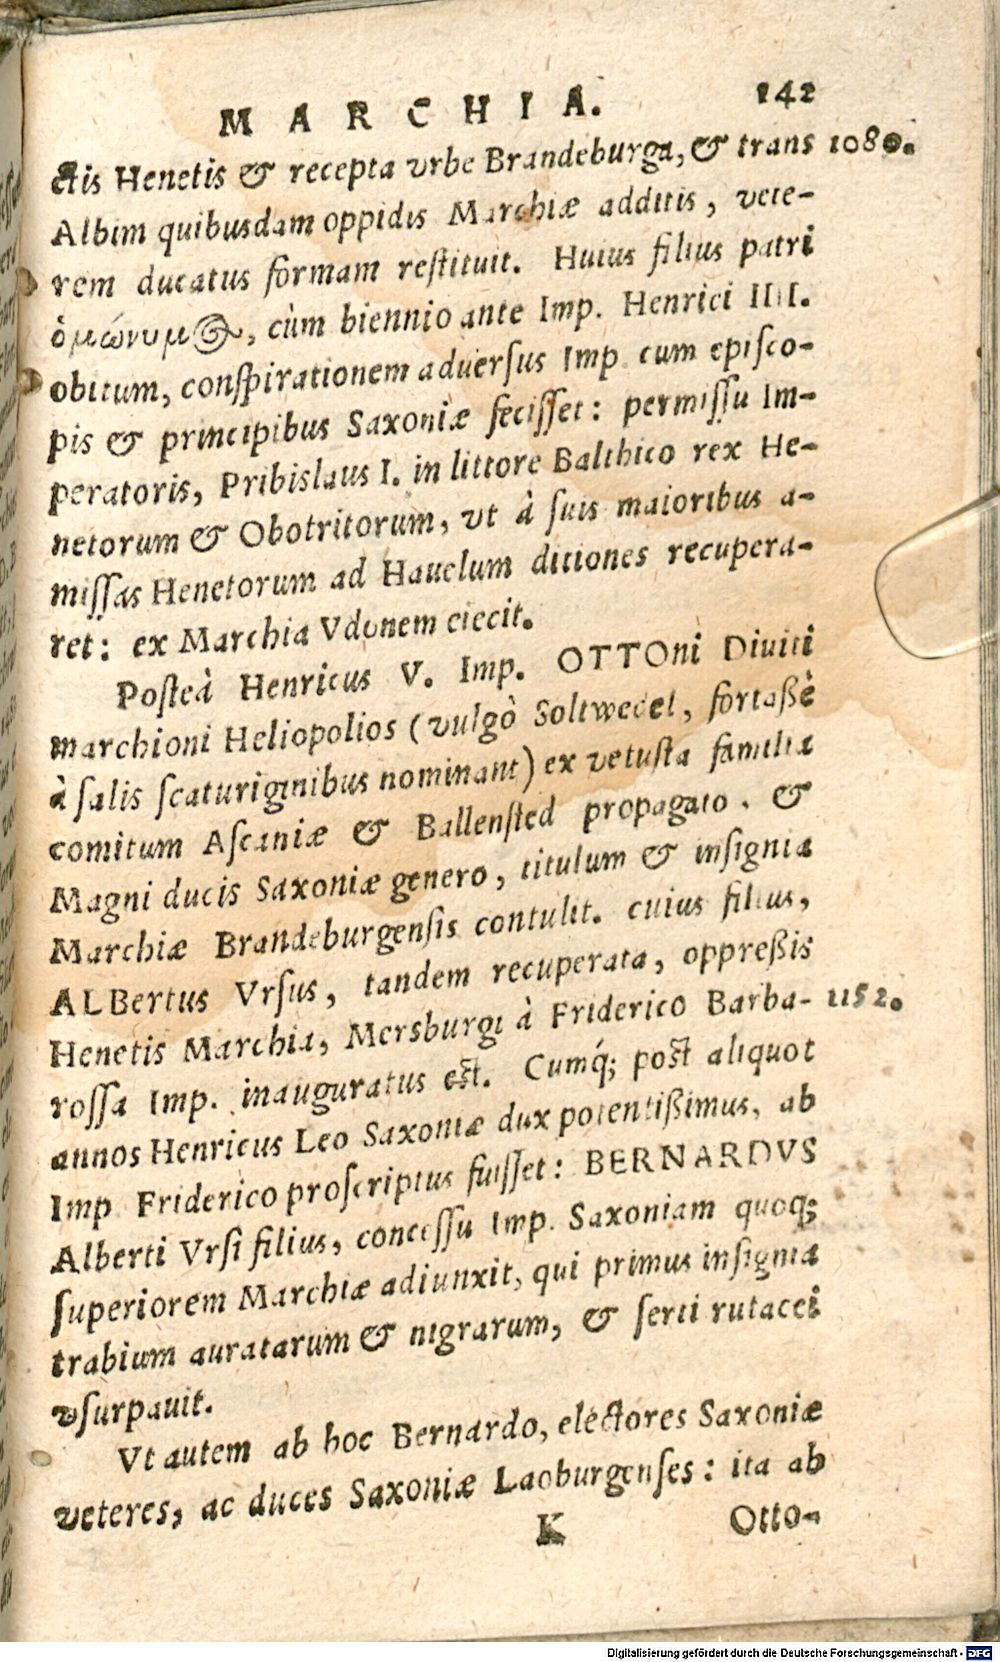 MARCHIA. 142
ctis Henetis & recepta vrbe Brandeburga, & trans 1080.
Albim quibusdam oppidis Marchiæ additis, vete-
rem ducatus formam reſtituit. Huius filius patri
ὁμώνυμος, cùm biennio ante Imp. Henrici IIII.
obitum, conſpirationem aduerſus Imp. cum epiſco-
pis & principibus Saxoniæ feciſſet: permiſſu Im-
peratoris, Pribislaus I. in littore Balthico rex He-
netorum & Obotritorum, vt à ſuis maioribus a-
miſſas Henetorum ad Hauelum ditiones recupera-
ret: ex Marchia Vdonem eiecit.
Poſteà Henricus V. Imp. OTTOni Diuiti
marchioni Heliopolios (vulgò Soltwedel, fortaßè
à ſalis ſcaturiginibus nominant) ex vetuſta familia
comitum Aſcaniæ & Ballenſted propagato. &
Magni ducis Saxoniæ genero, titulum & inſignia
Marchiæ Brandeburgenſis contulit. cuius filius,
ALBertus Vrſus, tandem recuperata, oppreßis
Henetis Marchia, Mersburgi à Friderico Barba- 1152.
roſſa Imp. inauguratus eſt. Cumq́; poſt aliquot
annos Henricus Leo Saxoniæ dux potentißimus, ab
Imp. Friderico proſcriptus fuiſſet: BERNARDVS
Alberti Vrſi filius, conceſſu Imp. Saxoniam quoq;
ſuperiorem Marchiæ adiunxit, qui primus inſignia
trabium auratarum & nigrarum, & ſerti rutacei
vſurpauit.
Vt autem ab hoc Bernardo, electores Saxoniæ
veteres, ac duces Saxoniæ Laoburgenſes: ita ab
K Otto-
Digitalisierung gefördert durch die Deutsche Forschungsgemeinschaft - DFG